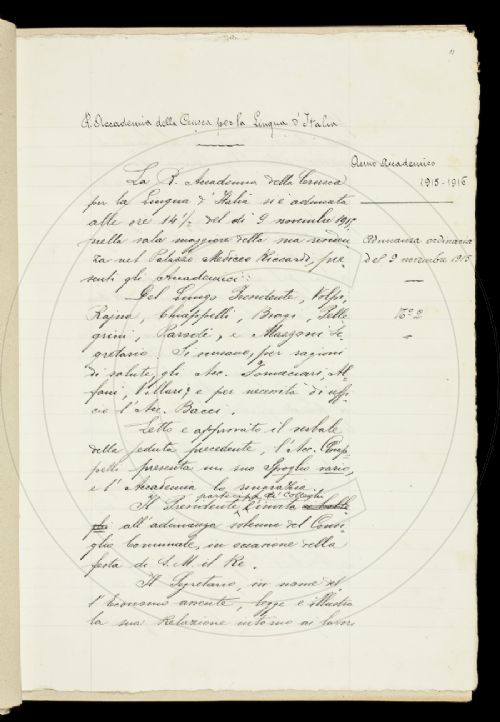 R. Accademia della Crusca per la Lingua d'Italia
Anno Accademico
1915-1916
La R. Accademia della Crusca
per la Lingua d'Italia si è adunata
alle ore 14½ del dì 9 novembre 1915,
nella sala maggiore della sua residen
za nel Palazzo Mediceo Riccardi, pre
senti gli Accademici:
Adunanza ordinaria
del 9 novembre 1915
Del Lungo Presidente, Volpi,
Rajna, Chiappelli, Biagi, Pelle
grini, Parodi, e Mazzoni Se
gretario. Si scusano, per ragioni
di salute, gli Acc. Tommasini, Al
fani, Villari; e per necessità di uffi
cio l'Acc. Bacci.
Nº 2
Letto e approvato il verbale
della seduta precedente, l'Acc. Chiap
pelli presenta un suo Spoglio vario,
e l'Accademia lo ringrazia.
Il Presidente partecipa ai Colleghi l'invito
all'adunanza solenne del Consi
glio Comunale, in occasione della
festa di S. M. il Re.
Il Segretario, in nome del
l'Economo assente, legge e illustra
la sua Relazione intorno ai lavori